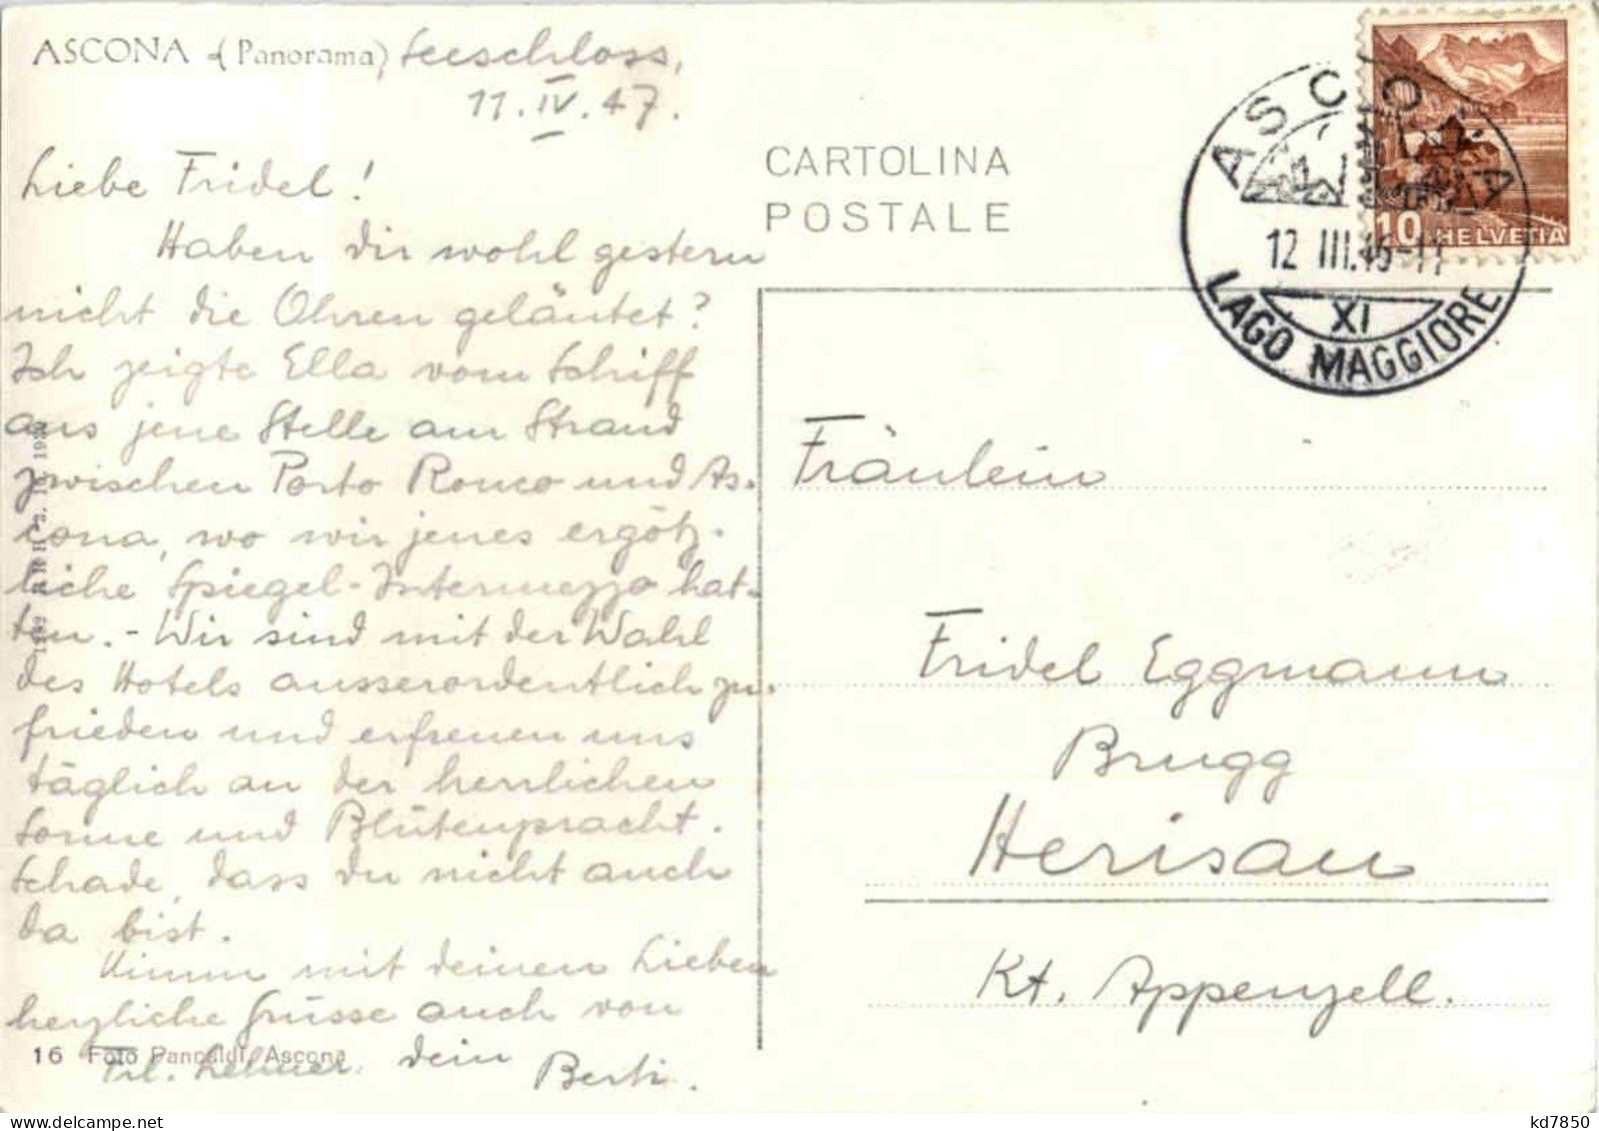 ASCONA - (Panorama), Seeschloss,
11. IV. 47.
Liebe Fridel!
Haben dir wohl gestern
nicht die Ohren geläutet?
Ich zeigte Ella vom Schiff
aus jene Stelle am Strand
zwischen Porto Ronco und As-
cona, wo wir jenes ergötz-
liche Spiegel-Intermezzo hat-
ten. - Wir sind mit der Wahl
des Hotels ausserordentlich zu-
frieden und erfreuen uns
täglich an der herrlichen
Sonne und Blütenpracht.
Schade, dass du nicht auch
da bist.
Nimm mit deinen Lieben
herzliche Grüsse auch von
Frl. Lehner. dein Berti.
16 Foto Pancaldi, Ascona
CARTOLINA
POSTALE
ASCONA
12 III.46-11
XI
LAGO MAGGIORE
10 HELVETIA
Fräulein
Fridel Eggmann
Brugg
Herisau
Kt. Appenzell.
kd7850